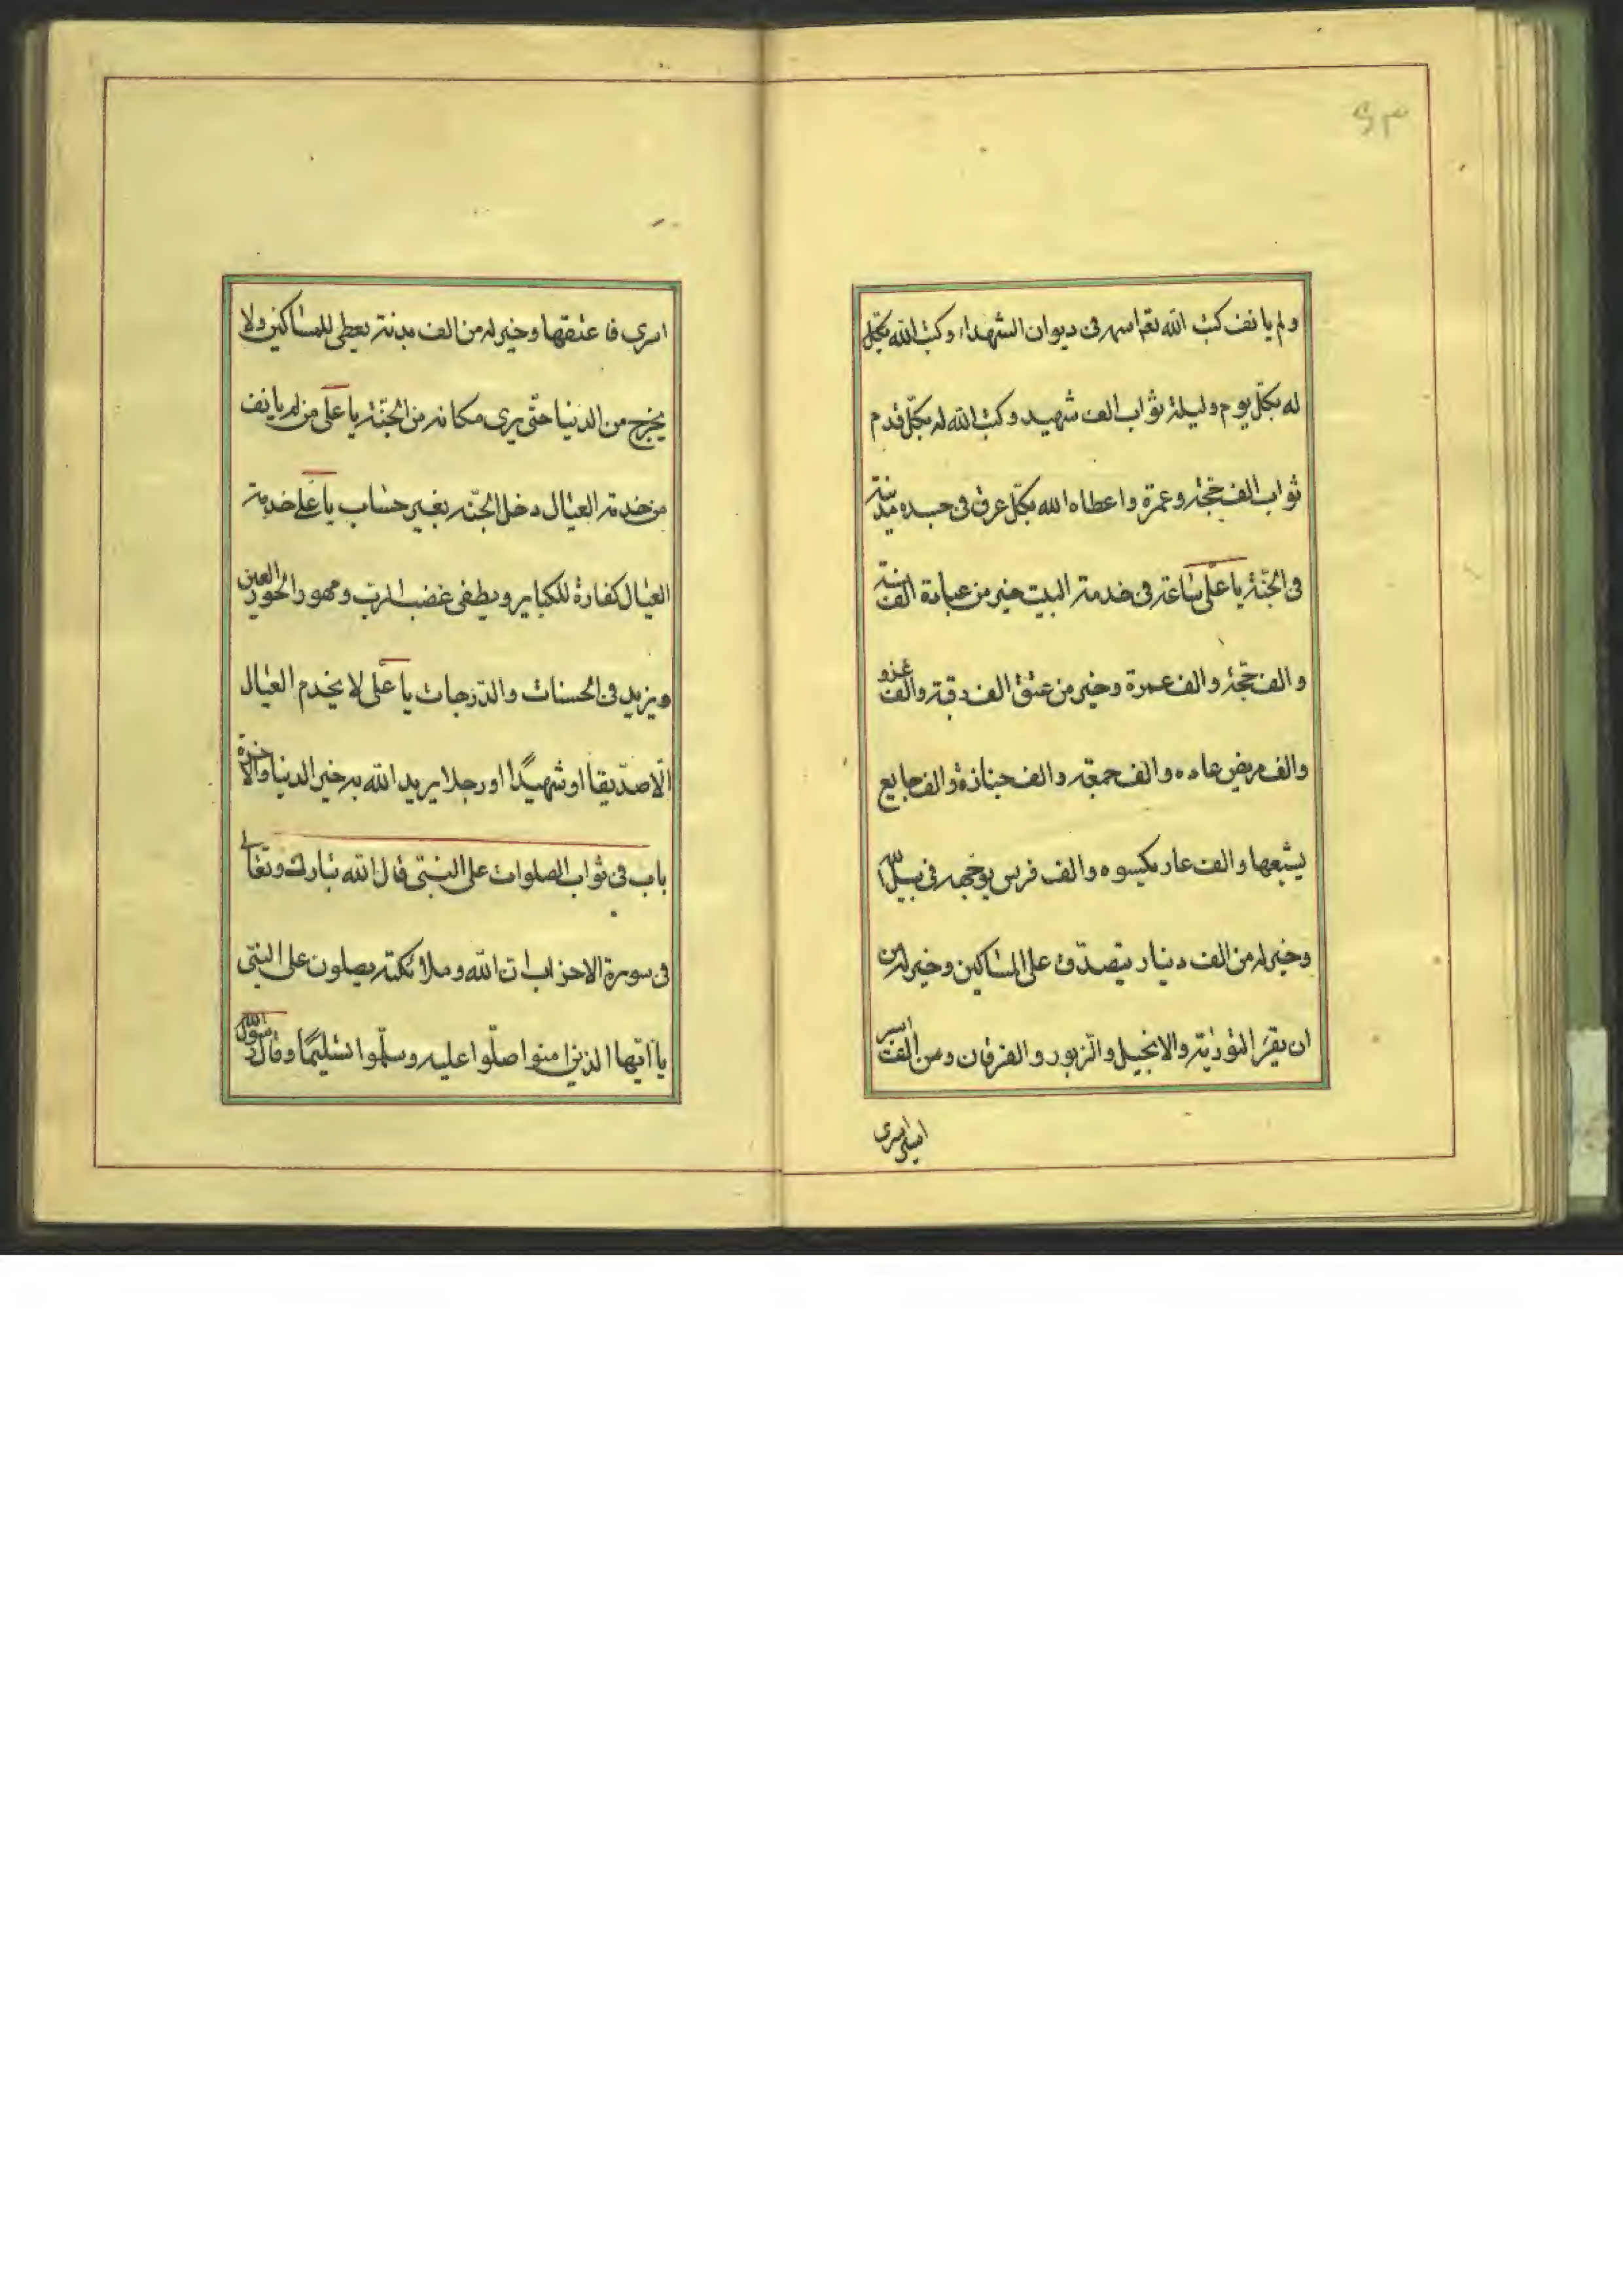 ولم يانف كتب الله تعم اسمه فى ديوان الشهداء وكتب الله بكل
له بكلّ يوم وليلة ثواب الف شهيد وكتب الله له بكلّ قدم
ثواب الف حجّة وعمرة واعطاه الله بكلّ عرق فى جسده مدينة
فى الجنّة يا على ساعة فى خدمة البيت خير من عبادة الف سنة
والف حجّة والف عمرة وخير من عتق الف رقبة والف غزو
والف مريض عاده والف جمعة والف جنازة والف جايع
يشبعها والف عار يكسوه والف فرس يوجّهه فى سبيل الله
وخير له من الف دينار يتصدّق على المساكين وخير له من
ان يقرء التورية والانجيل والزبور والفرقان ومن الف اسير
اسرى
اسرى فاعتقها وخير له من الف بدنة يعطى للمساكين ولا
يخرج من الدنيا حتّى يرى مكانه من الجنّة يا على من لم يانف
من خدمة العيال دخل الجنّة بغير حساب يا على خدمة
العيال كفارة للكباير ويطفى غضب الرب ومهور الحور العين
ويزيد فى الحسنات والدّرجات يا على لا يخدم العيال
الّا صدّيقا او شهيدًا او رجلا يريد الله به خير الدنيا والاخرة
باب فى ثواب الصلوات على النبىّ قال الله تبارك وتعالى
فى سورة الاحزاب انّ الله وملائكته يصلون على النبىّ
يا ايّها الذين امنوا صلّوا عليه وسلّموا تسليمًا وقال رسول الله